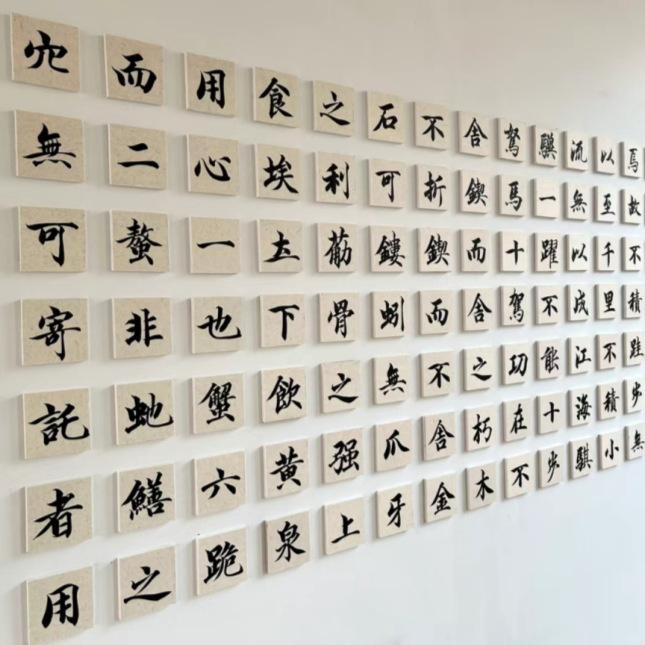 焉故不積跬步無
以至千里不積小
流無以成江海騏
驥一躍不能十步
駑馬十駕功在不
舍鍥而舍之朽木
不折鍥而不舍金
石可鏤蚓無爪牙
之利筋骨之强上
食埃土下飲黄泉
用心一也蟹六跪
而二螯非虵鱔之
穴無可寄託者用